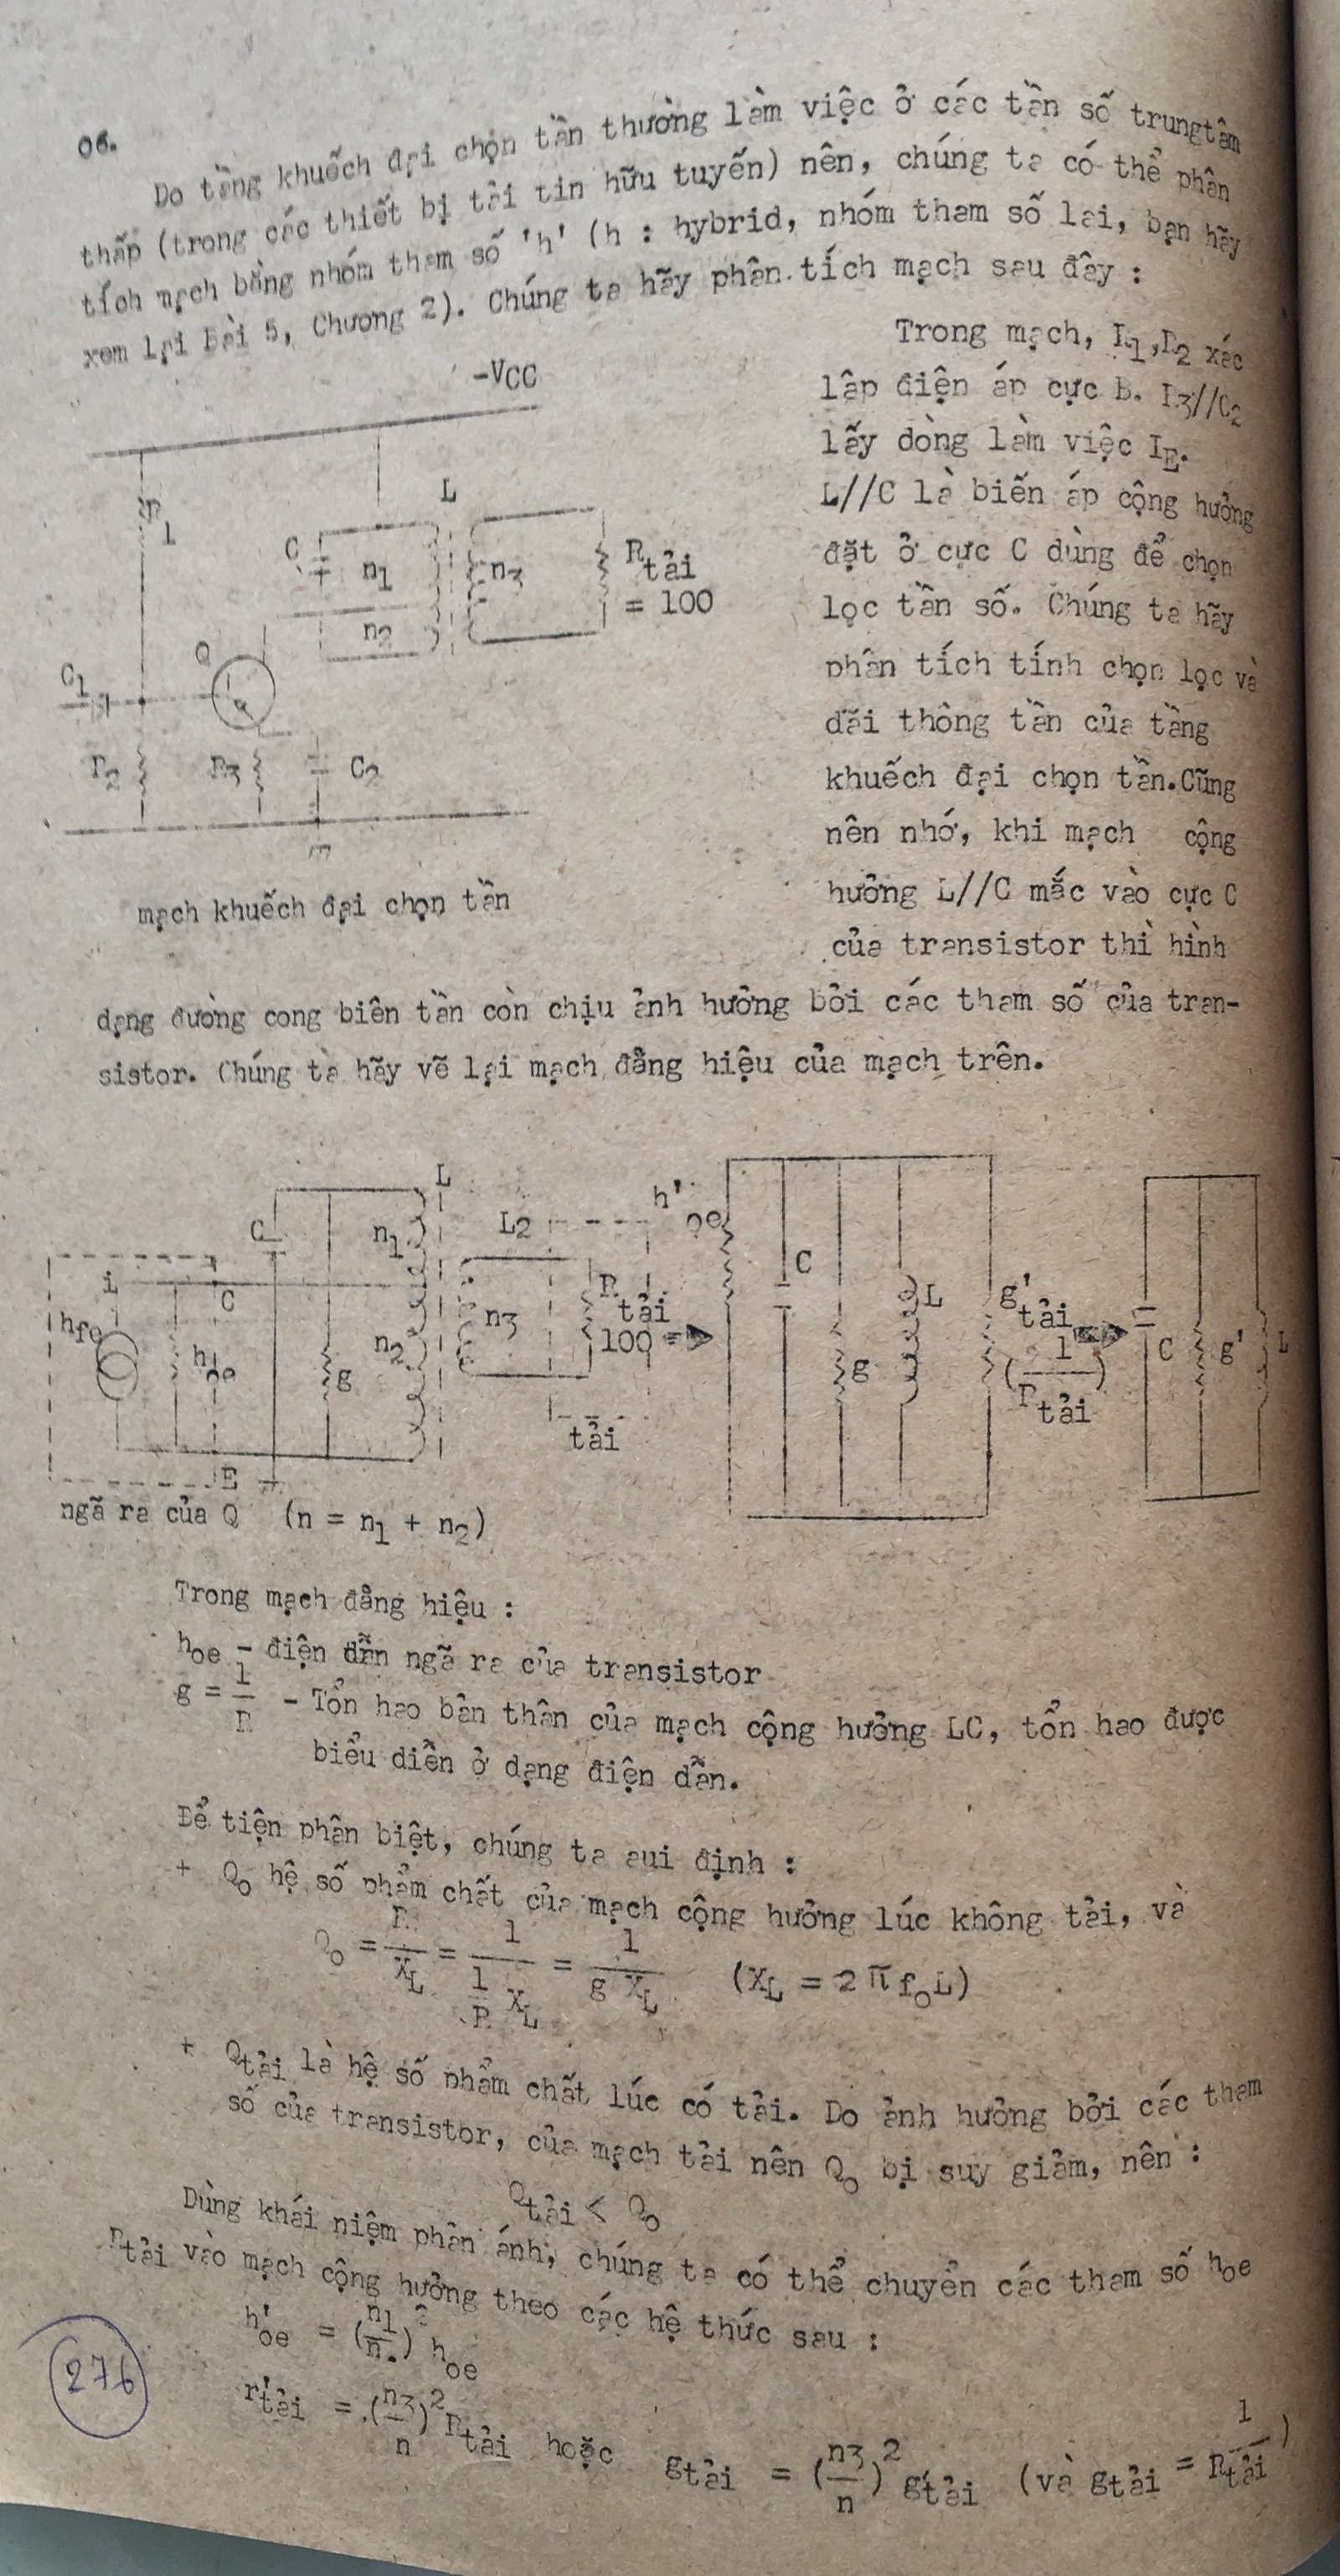 06.
Do tầng khuếch đại chọn tần thường làm việc ở các tần số trungtâm
thấp (trong các thiết bị tải tin hữu tuyến) nên, chúng ta có thể phân
tích mạch bằng nhóm tham số 'h' (h : hybrid, nhóm tham số lai, bạn hãy
xem lại Bài 5, Chương 2). Chúng ta hãy phân tích mạch sau đây :
-VCC
Trong mạch, R1,R2 xác
lập điện áp cực B. R3//C2
lấy dòng làm việc IE.
L//C là biến áp cộng hưởng
đặt ở cực C dùng để chọn
lọc tần số. Chúng ta hãy
phân tích tính chọn lọc và
dãi thông tần của tầng
khuếch đại chọn tần.Cũng
nên nhớ, khi mạch cộng
hưởng L//C mắc vào cực C
của transistor thì hình
R1
L
C
n1
n3
Rtải
= 100
n2
Q
C1
R2
R3
C2
mạch khuếch đại chọn tần
dạng đường cong biên tần còn chịu ảnh hưởng bởi các tham số của tran-
sistor. Chúng ta hãy vẽ lại mạch đẳng hiệu của mạch trên.
L
C
n1
L2
h'oe
C
i
C
hfe
hoe
n2
g
n3
Rtải
100
tải
g
L
g'tải
(1/Rtải)
C
g'
L
E
ngã ra của Q (n = n1 + n2)
Trong mạch đẳng hiệu :
hoe - điện dẫn ngã ra của transistor
g = 1/R - Tổn hao bản thân của mạch cộng hưởng LC, tổn hao được
biểu diễn ở dạng điện dẫn.
Để tiện phân biệt, chúng ta qui định :
+ Qo hệ số phẩm chất của mạch cộng hưởng lúc không tải, và
Qo = R/XL = 1/(1/R XL) = 1/(g XL) (XL = 2πfoL)
+ Qtải là hệ số phẩm chất lúc có tải. Do ảnh hưởng bởi các tham
số của transistor, của mạch tải nên Qo bị suy giảm, nên :
Qtải < Qo
Dùng khái niệm phản ánh, chúng ta có thể chuyển các tham số hoe
Rtải vào mạch cộng hưởng theo các hệ thức sau :
h'oe = (n1/n)2 hoe
r'tải = (n3/n)2 Rtải hoặc gtải = (n3/n)2 g'tải (và gtải = 1/Rtải)
276